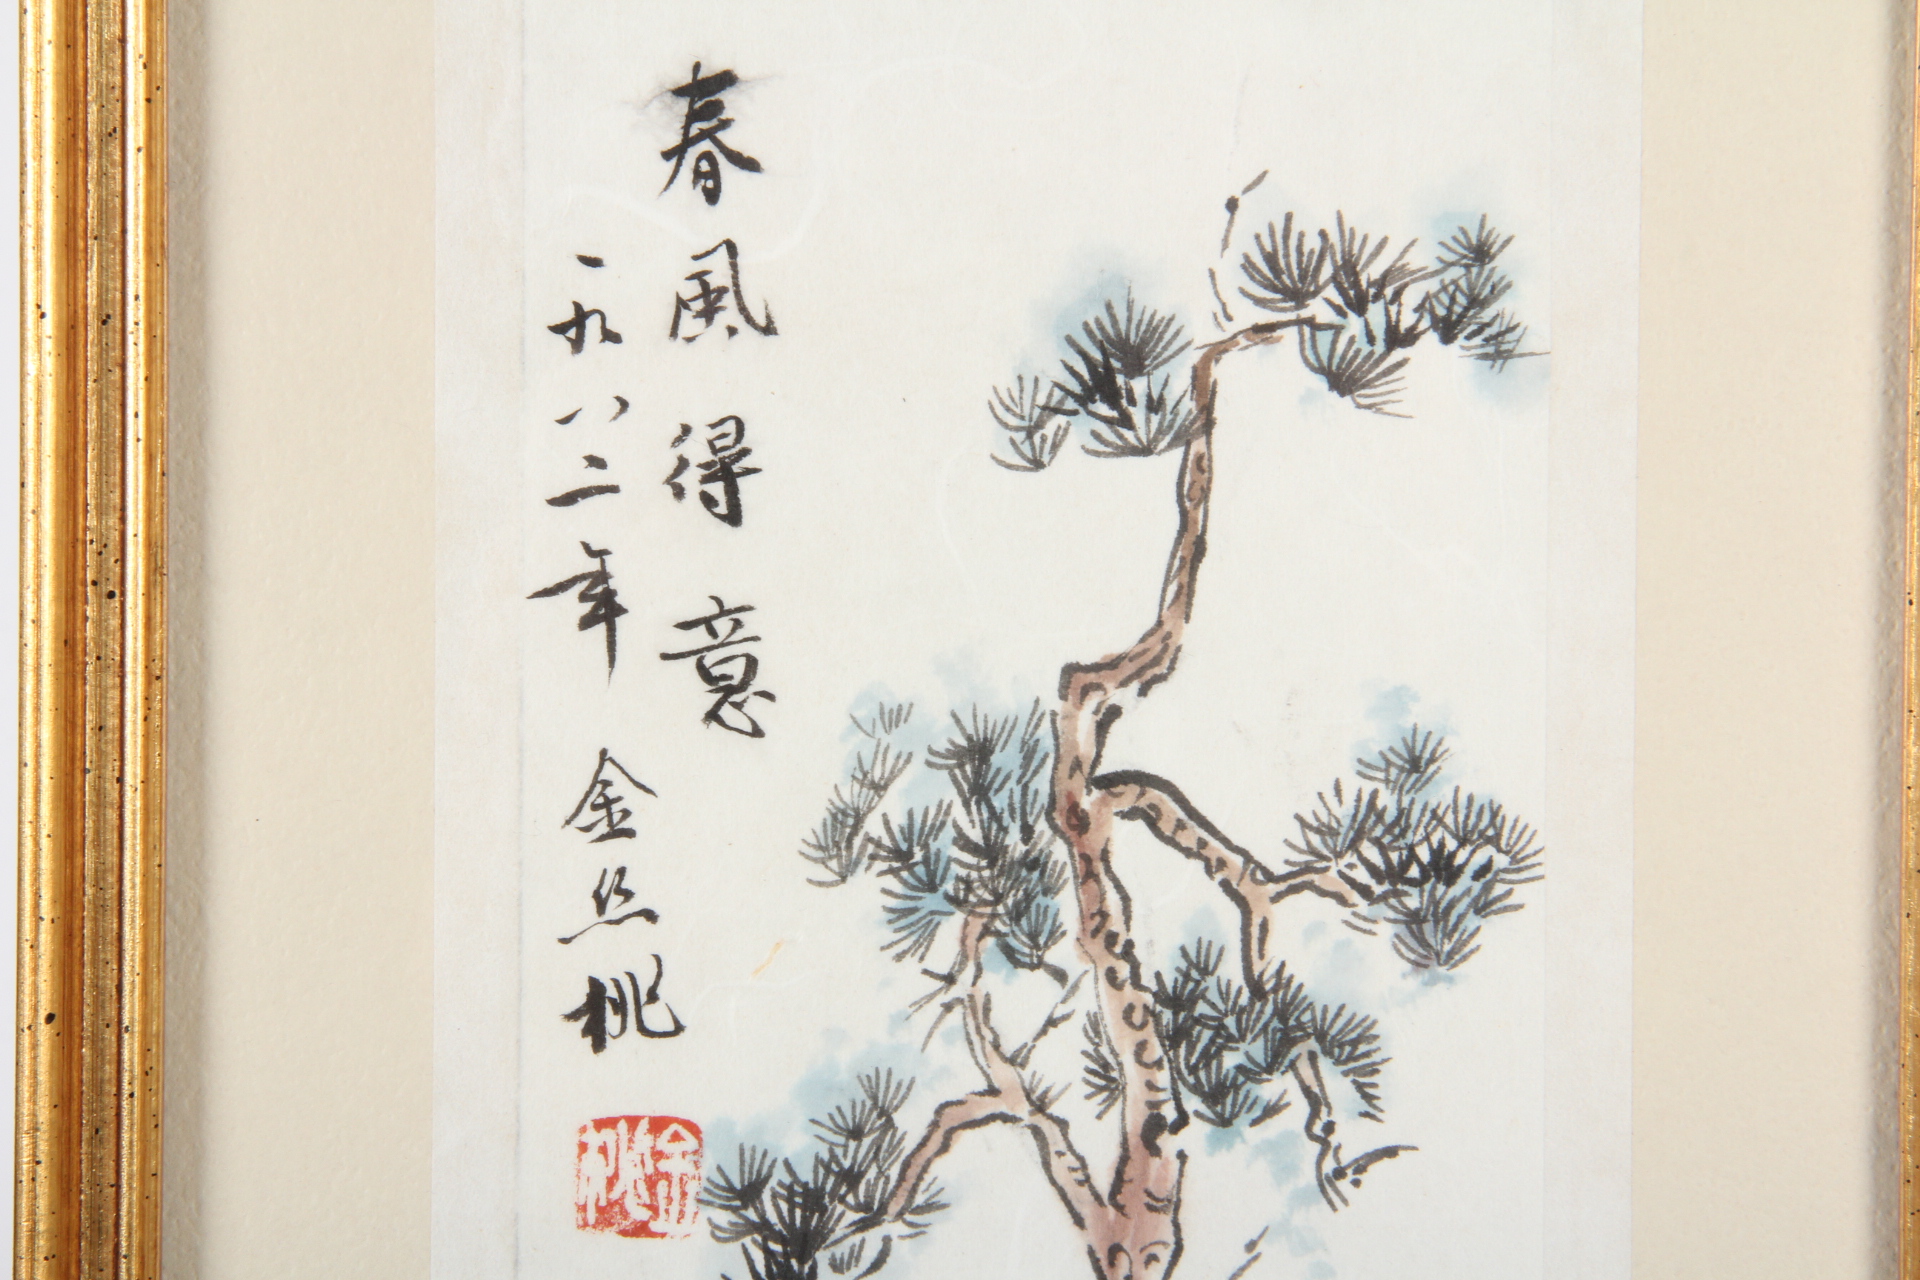 春风得意
一九八二年 金丝桃
金丝桃